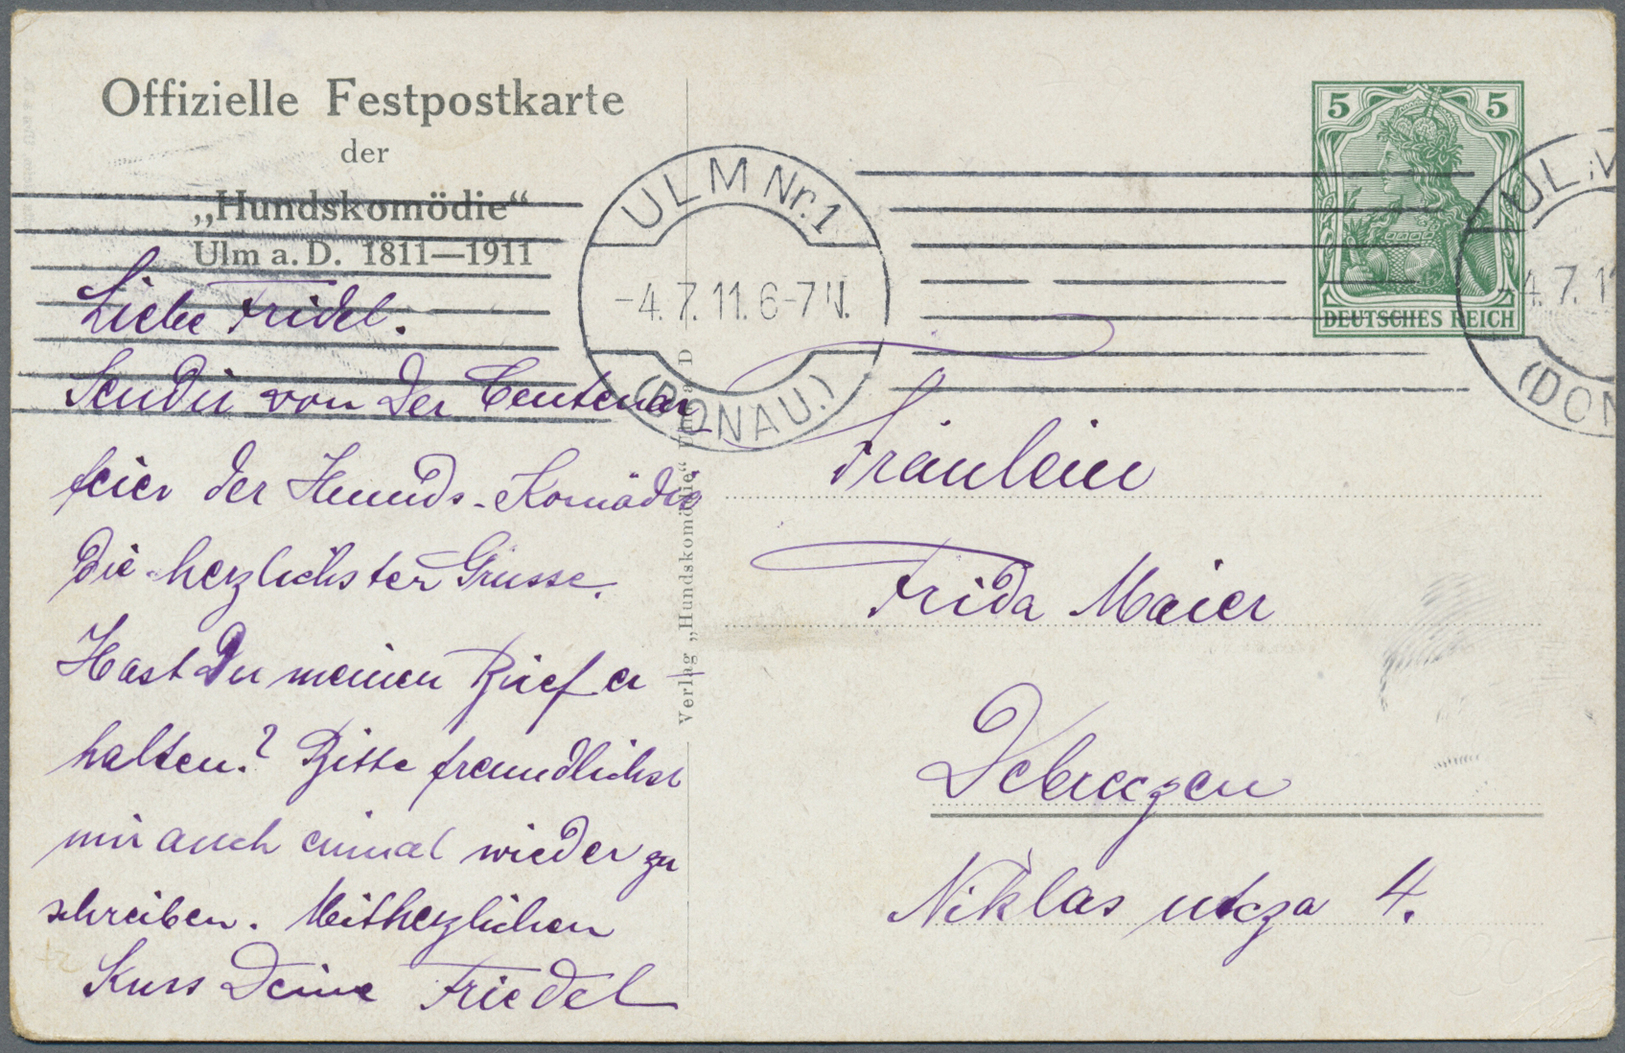 Offizielle Festpostkarte
der
„Hundskomödie“
Ulm a. D. 1811—1911
Liebe Fridel.
Sendir von der Centenar
feier der Hunds-Komödie
die herzlichsten Grüsse.
Hast Du meinen Brief er
halten? Bitte freundlichst
mir auch einmal wieder zu
schreiben. Mit herzlichen
Kuss Deine Friedel
Verlag „Hundskomödie“ Ulm a. D
ULM Nr. 1
-4.7.11.6-7 N.
(DONAU.)
5 5
DEUTSCHES REICH
ULM
-4.7.11
(DON
Fräulein
Frida Maier
Debreczen
Niklas utcza 4.